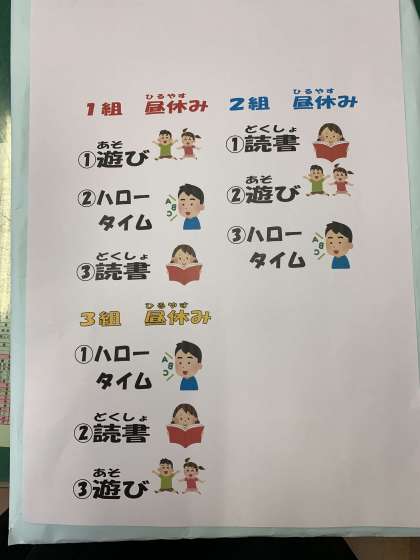 1組 昼休み
ひるやす
①遊び
あそ
②ハロー
タイム
ABC
③読書
どくしょ
2組 昼休み
ひるやす
①読書
どくしょ
②遊び
あそ
③ハロー
タイム
ABC
3組 昼休み
ひるやす
①ハロー
タイム
ABC
②読書
どくしょ
③遊び
あそ